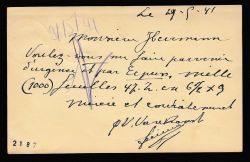 Le 29-5-41
Monsieur Hermann
Voulez-vous me faire parvenir
d'urgence par Expres, mille
(1000) feuilles 47.h. en 6½ x 9
Merci et cordialement
2187